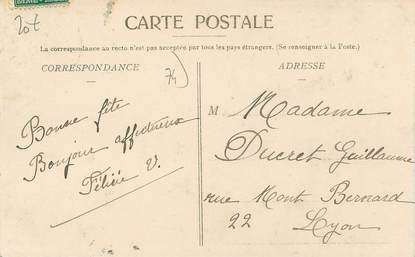 20t
CARTE POSTALE
La correspondance au recto n'est pas acceptée par tous les pays étrangers. (Se renseigner à la Poste.)
CORRESPONDANCE
74
ADRESSE
Bonne fête
Bonjour affectueux
Félicie V.
M Madame
Ducret Guillaume
rue Mont Bernard
22 Lyon